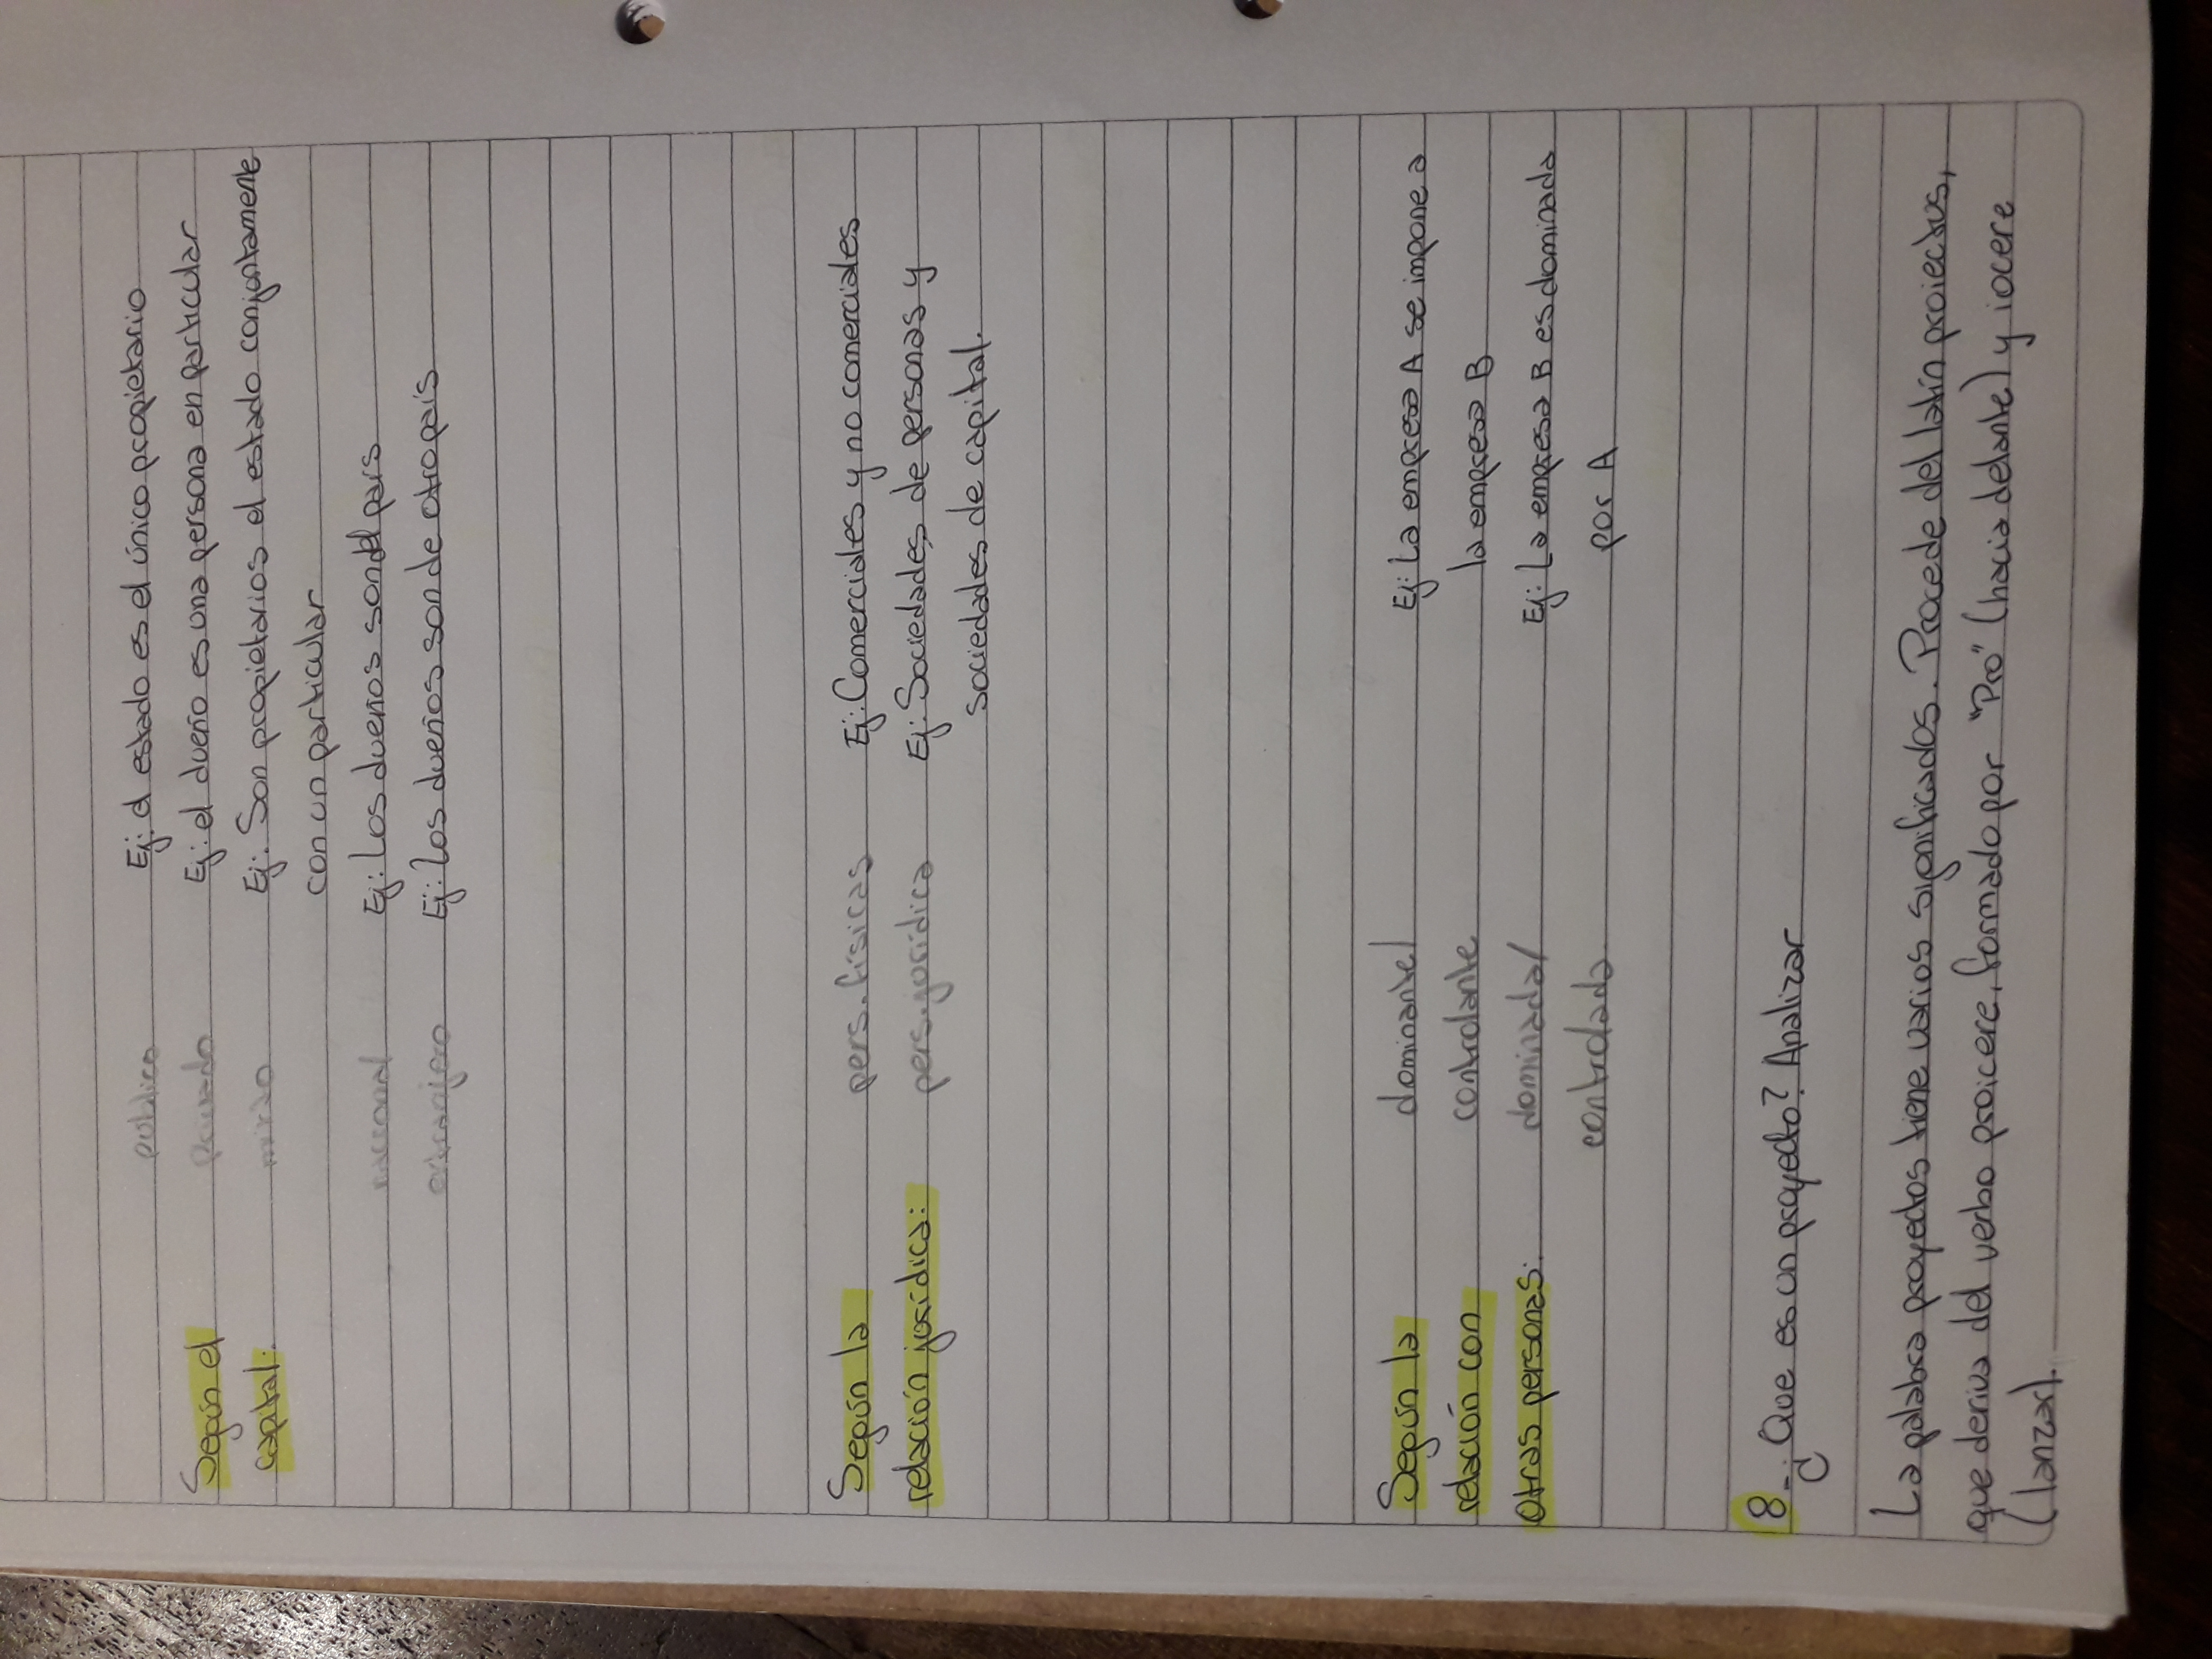 público Ej: el estado es el único propietario
Según el privado Ej: el dueño es una persona en particular
capital: mixto Ej: Son propietarios el estado conjontamente
con un particular
nacional Ej: Los dueños son del país
extranjero Ej: Los dueños son de otro país
Según la pers. físicas Ej: Comerciales y no comerciales
relación jurídica: pers. jurídica Ej: Sociedades de personas y
sociedades de capital.
Según la dominante/ Ej: La empresa A se impone a
relación con controlante la empresa B
otras personas: dominada/ Ej: La empresa B es dominada
controlada por A
8-¿Que es un proyecto? Analizar
La palabra proyectos tiene varios significados. Procede del latín proiectus,
que deriva del verbo proicere, formado por "Pro" (hacia delante) y iacere
(lanzar).